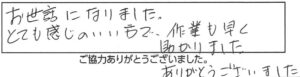 お世話になりました。
とても感じのいい方で、作業も早く
助かりました
ご協力ありがとうございました。
ありがとうございました